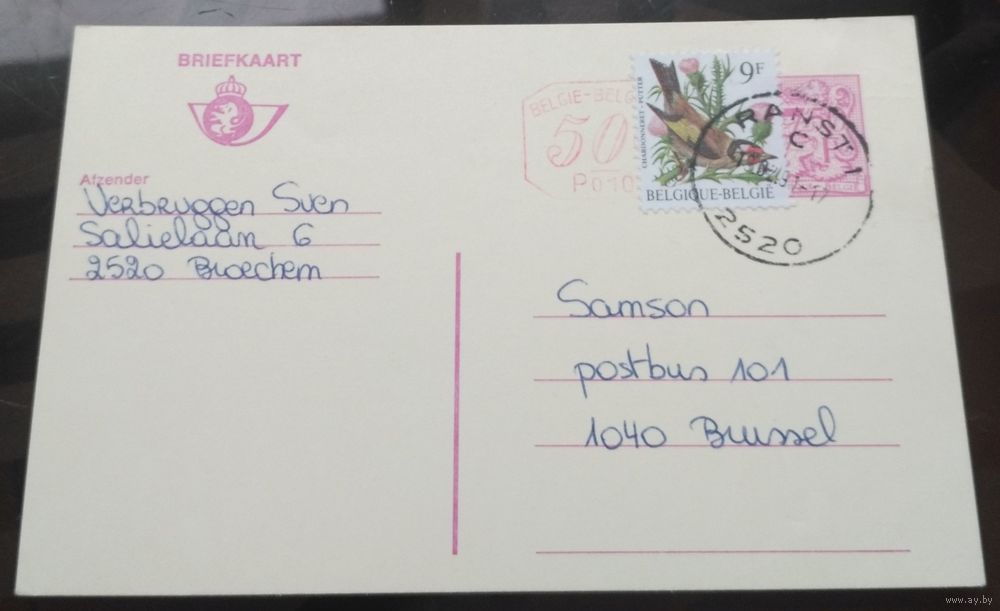 BRIEFKAART
Afzender
Verbruggen Sven
Salielaan 6
2520 Broechem
BELGIE-BELG
50
P010
9F
CHARDONNERET-PUTTER
BELGIQUE-BELGIË
RANST 1
C
2520
Samson
postbus 101
1040 Brussel
www.ay.by